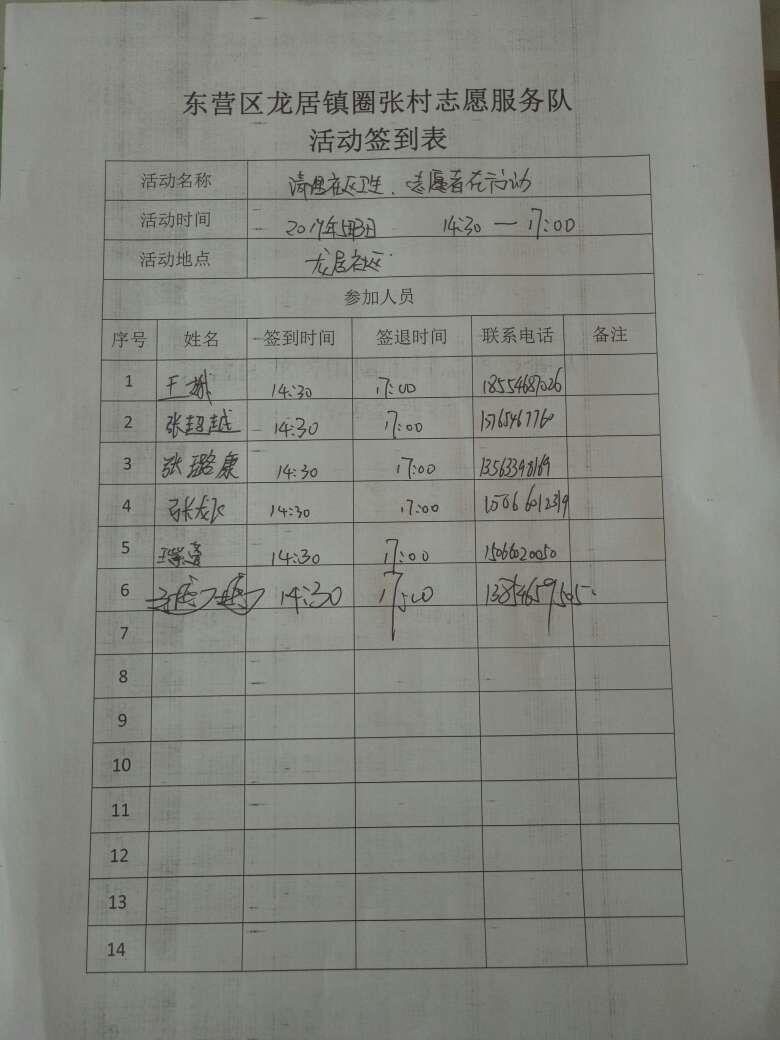 东营区龙居镇圈张村志愿服务队
活动签到表
活动名称 清理社区卫生、志愿者在行动
活动时间 14:30 — 17:00
活动地点 龙居社区
参加人员
序号 姓名 签到时间 签退时间 联系电话 备注
1 14:30 17:00 18554687026
2 张超越 14:30 17:00
3 张璐康 14:30 17:00 13563398169
4 张龙飞 14:30 17:00
5 14:30 17:00 15066020050
6 14:30 17:00
7
8
9
10
11
12
13
14